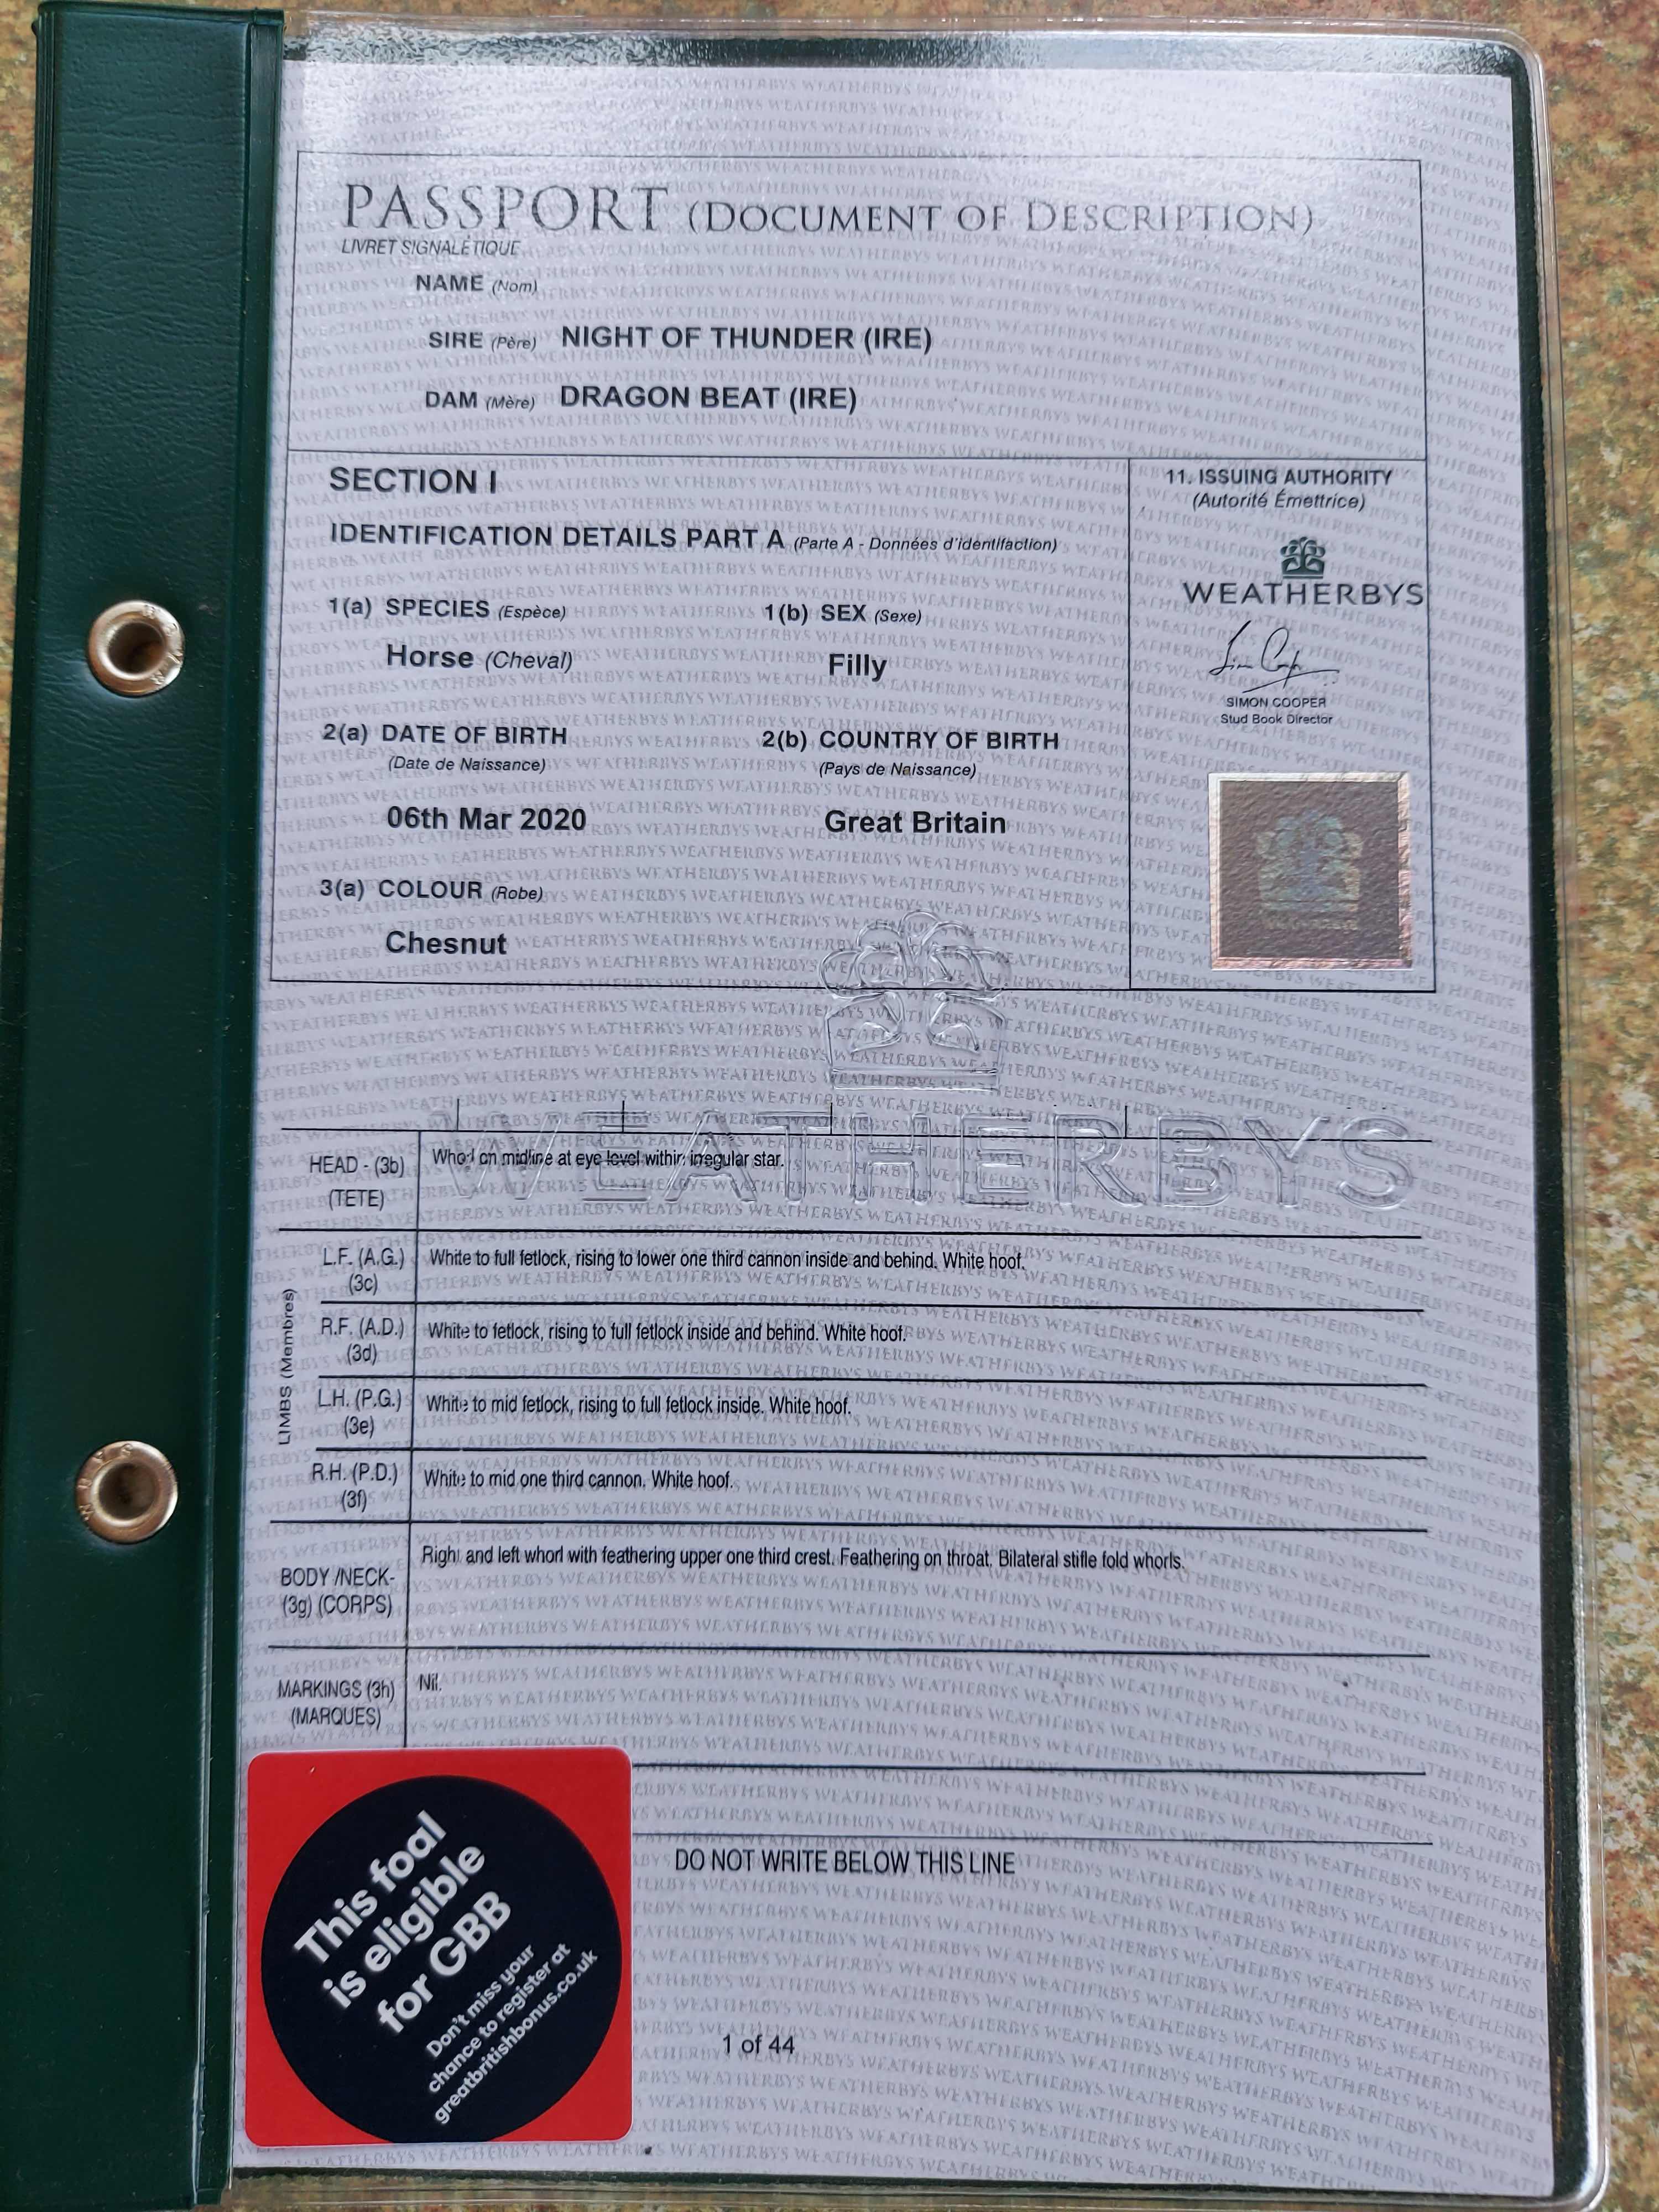 PASSPORT (DOCUMENT OF DESCRIPTION)
LIVRET SIGNALÉTIQUE
NAME (Nom)
SIRE (Père) NIGHT OF THUNDER (IRE)
DAM (Mère) DRAGON BEAT (IRE)
SECTION I
IDENTIFICATION DETAILS PART A (Parte A - Données d'identifaction)
1(a) SPECIES (Espèce) 1(b) SEX (Sexe)
Horse (Cheval) Filly
2(a) DATE OF BIRTH 2(b) COUNTRY OF BIRTH
(Date de Naissance) (Pays de Naissance)
06th Mar 2020 Great Britain
3(a) COLOUR (Robe)
Chesnut
11. ISSUING AUTHORITY
(Autorité Émettrice)
WEATHERBYS
SIMON COOPER
Stud Book Director
WEATHERBYS
HEAD - (3b) Whorl on midline at eye level within irregular star.
(TETE)
LIMBS (Membres)
L.F. (A.G.) White to full fetlock, rising to lower one third cannon inside and behind. White hoof.
(3c)
R.F. (A.D.) White to fetlock, rising to full fetlock inside and behind. White hoof.
(3d)
L.H. (P.G.) White to mid fetlock, rising to full fetlock inside. White hoof.
(3e)
R.H. (P.D.) White to mid one third cannon. White hoof.
(3f)
BODY /NECK- Right and left whorl with feathering upper one third crest. Feathering on throat. Bilateral stifle fold whorls.
(3g) (CORPS)
MARKINGS (3h) Nil.
(MARQUES)
DO NOT WRITE BELOW THIS LINE
This foal
is eligible
for GBB
Don't miss your
chance to register at
greatbritishbonus.co.uk
1 of 44